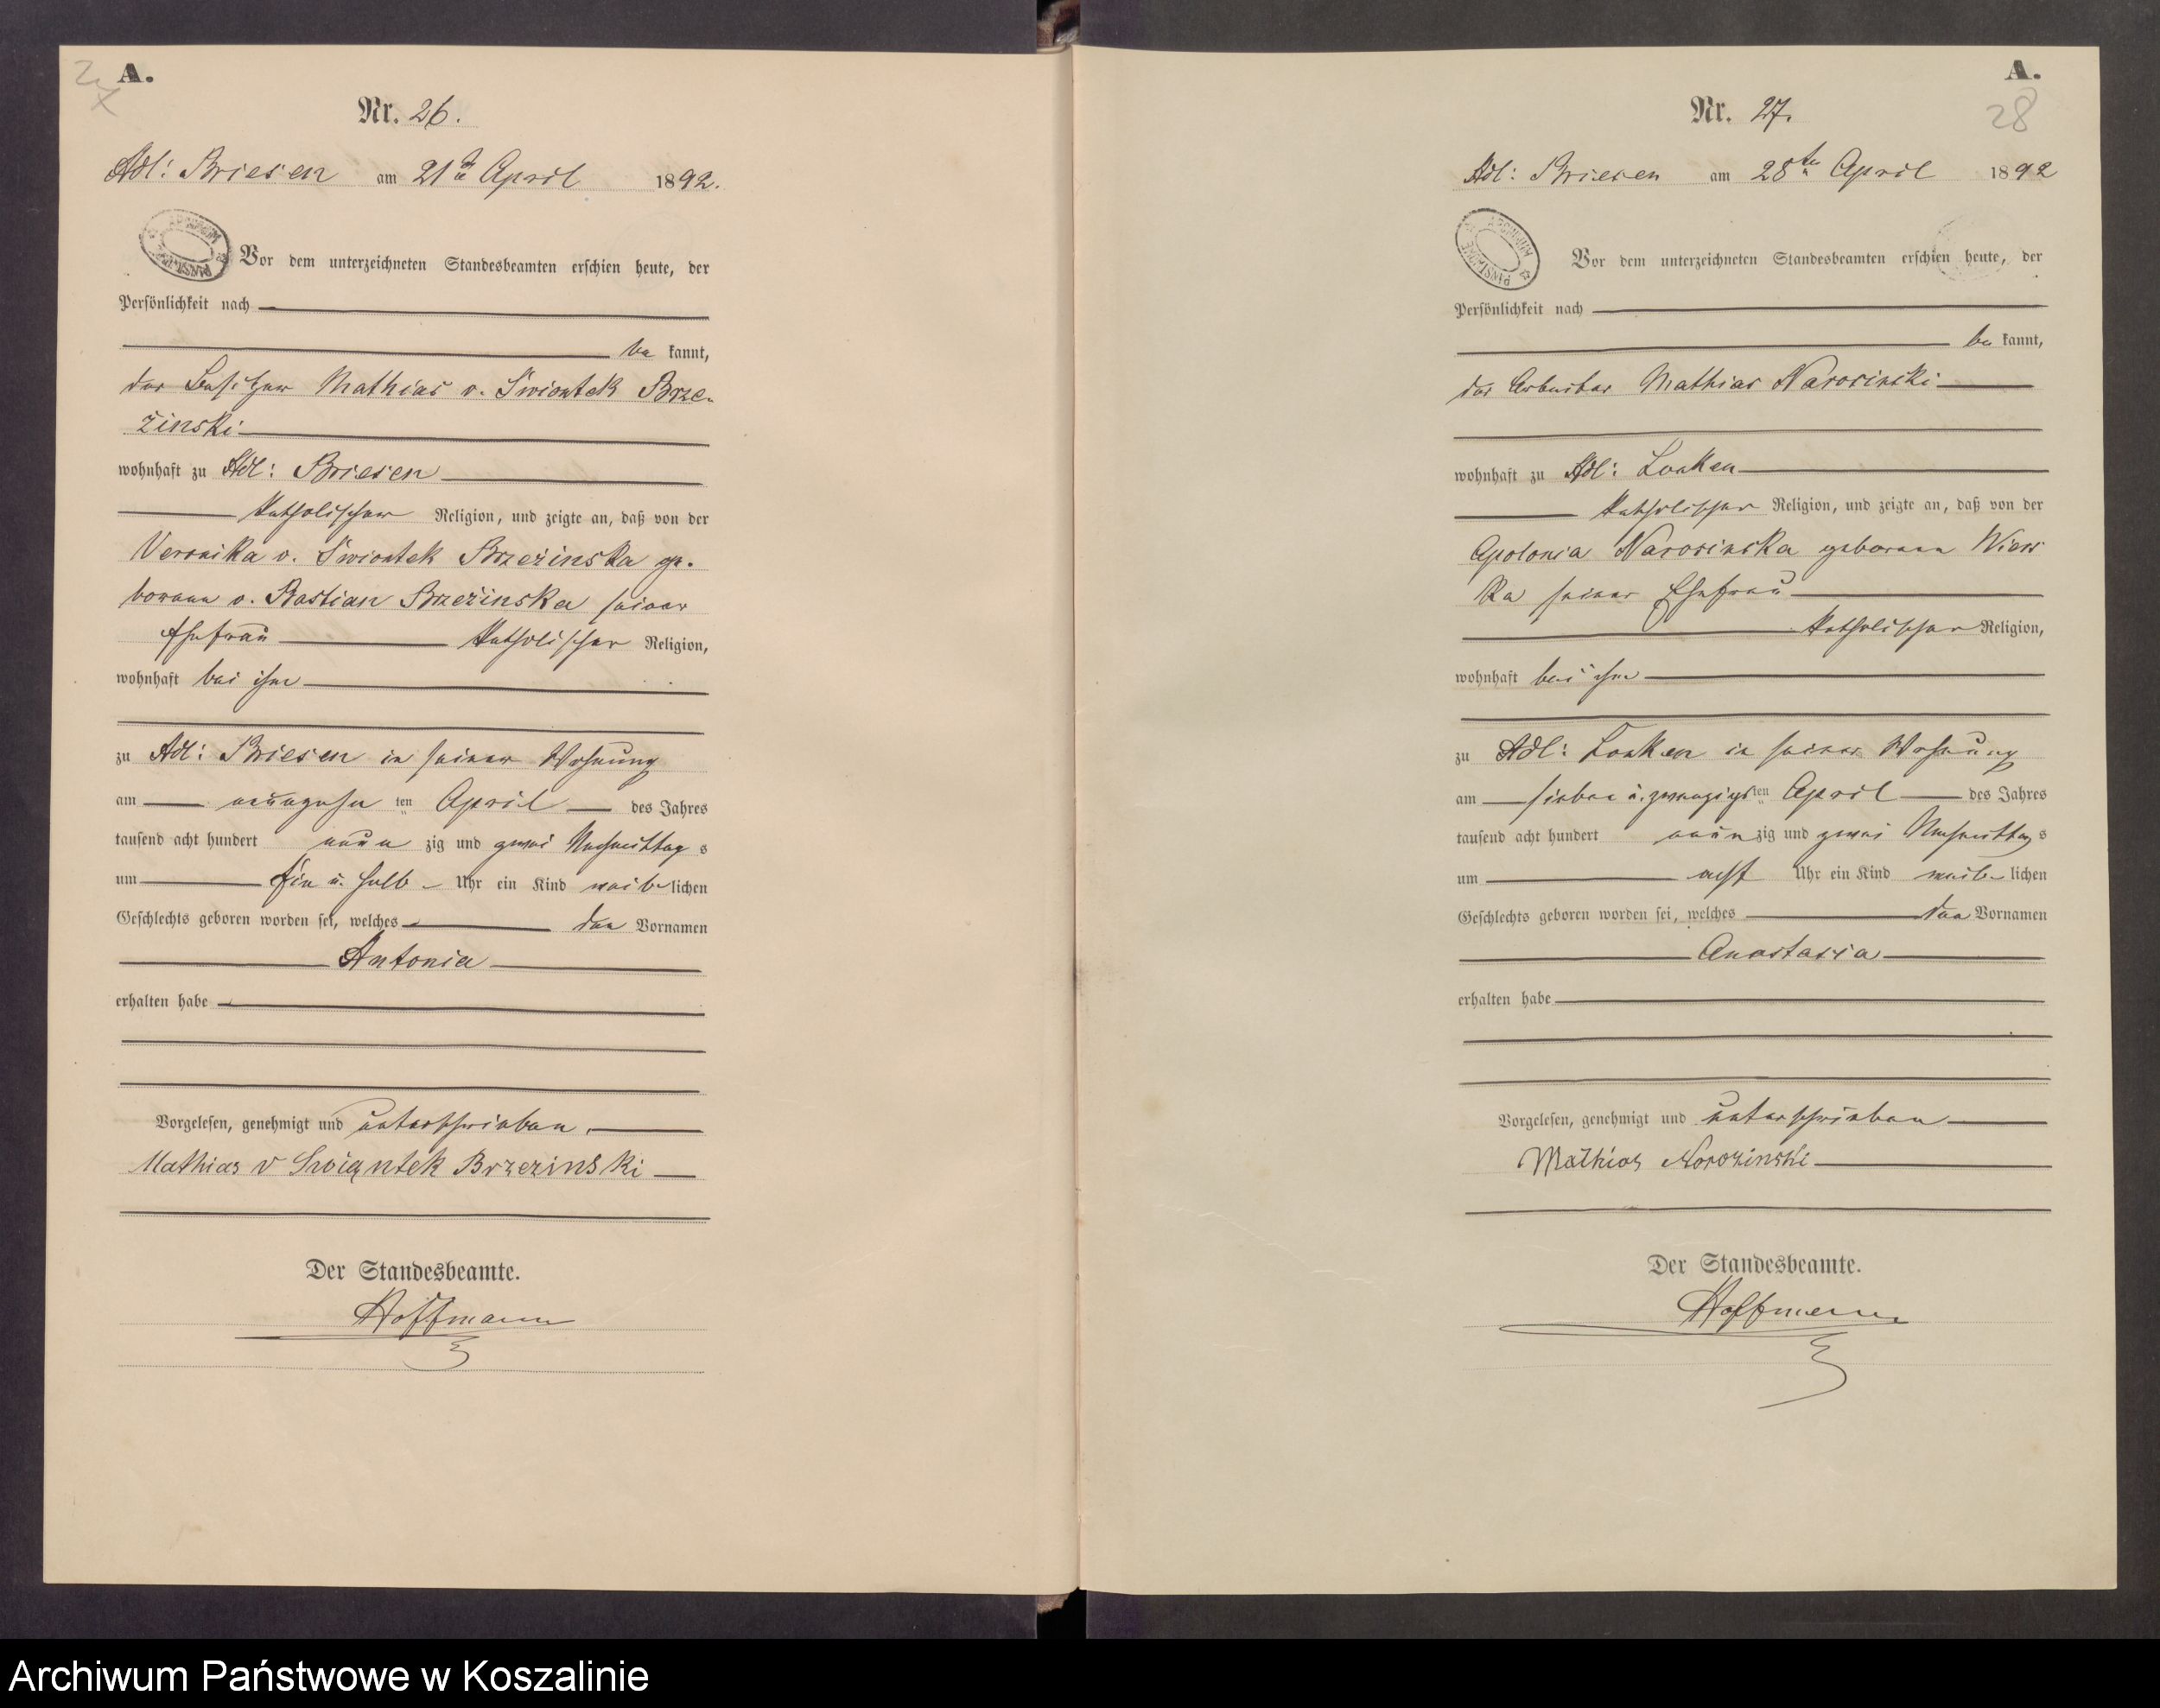 A.
Nr. 26.
Adl: Briesen am 21ten April 1892.
Vor dem unterzeichneten Standesbeamten erschien heute, der
Persönlichkeit nach
be kannt,
der Besitzer Mathias v. Swiontek Brze-
zinski
wohnhaft zu Adl: Briesen
katholischer Religion, und zeigte an, daß von der
Veronika v. Swiontek Brzezinska ge-
borene v. Bastian Brzezinska seiner
Ehefrau katholischer Religion,
wohnhaft bei ihm
zu Adl: Briesen in seiner Wohnung
am neunzehn ten April des Jahres
tausend acht hundert neun zig und zwei Nachmittag s
um Ein u. halb Uhr ein Kind weib lichen
Geschlechts geboren worden sei, welches den Vornamen
Antonia
erhalten habe
Vorgelesen, genehmigt und unterschrieben.
Mathias v Swiąntek Brzezinski
Der Standesbeamte.
Hoffmann
A.
28
Nr. 27.
Adl: Briesen am 28ten April 1892
Vor dem unterzeichneten Standesbeamten erschien heute, der
Persönlichkeit nach
be kannt,
der Arbeiter Mathias Narosinski
wohnhaft zu Adl: Lonken
katholischer Religion, und zeigte an, daß von der
Apolonia Narosinska geborene
ka seiner Ehefrau
katholischer Religion,
wohnhaft bei ihm
zu Adl: Lonken in seiner Wohnung
am sieben u. zwanzigsten April des Jahres
tausend acht hundert neun zig und zwei Nachmittag s
um acht Uhr ein Kind weib lichen
Geschlechts geboren worden sei, welches den Vornamen
Anastasia
erhalten habe
Vorgelesen, genehmigt und unterschrieben
Mathias Norozinski
Der Standesbeamte.
Hoffmann
Archiwum Państwowe w Koszalinie